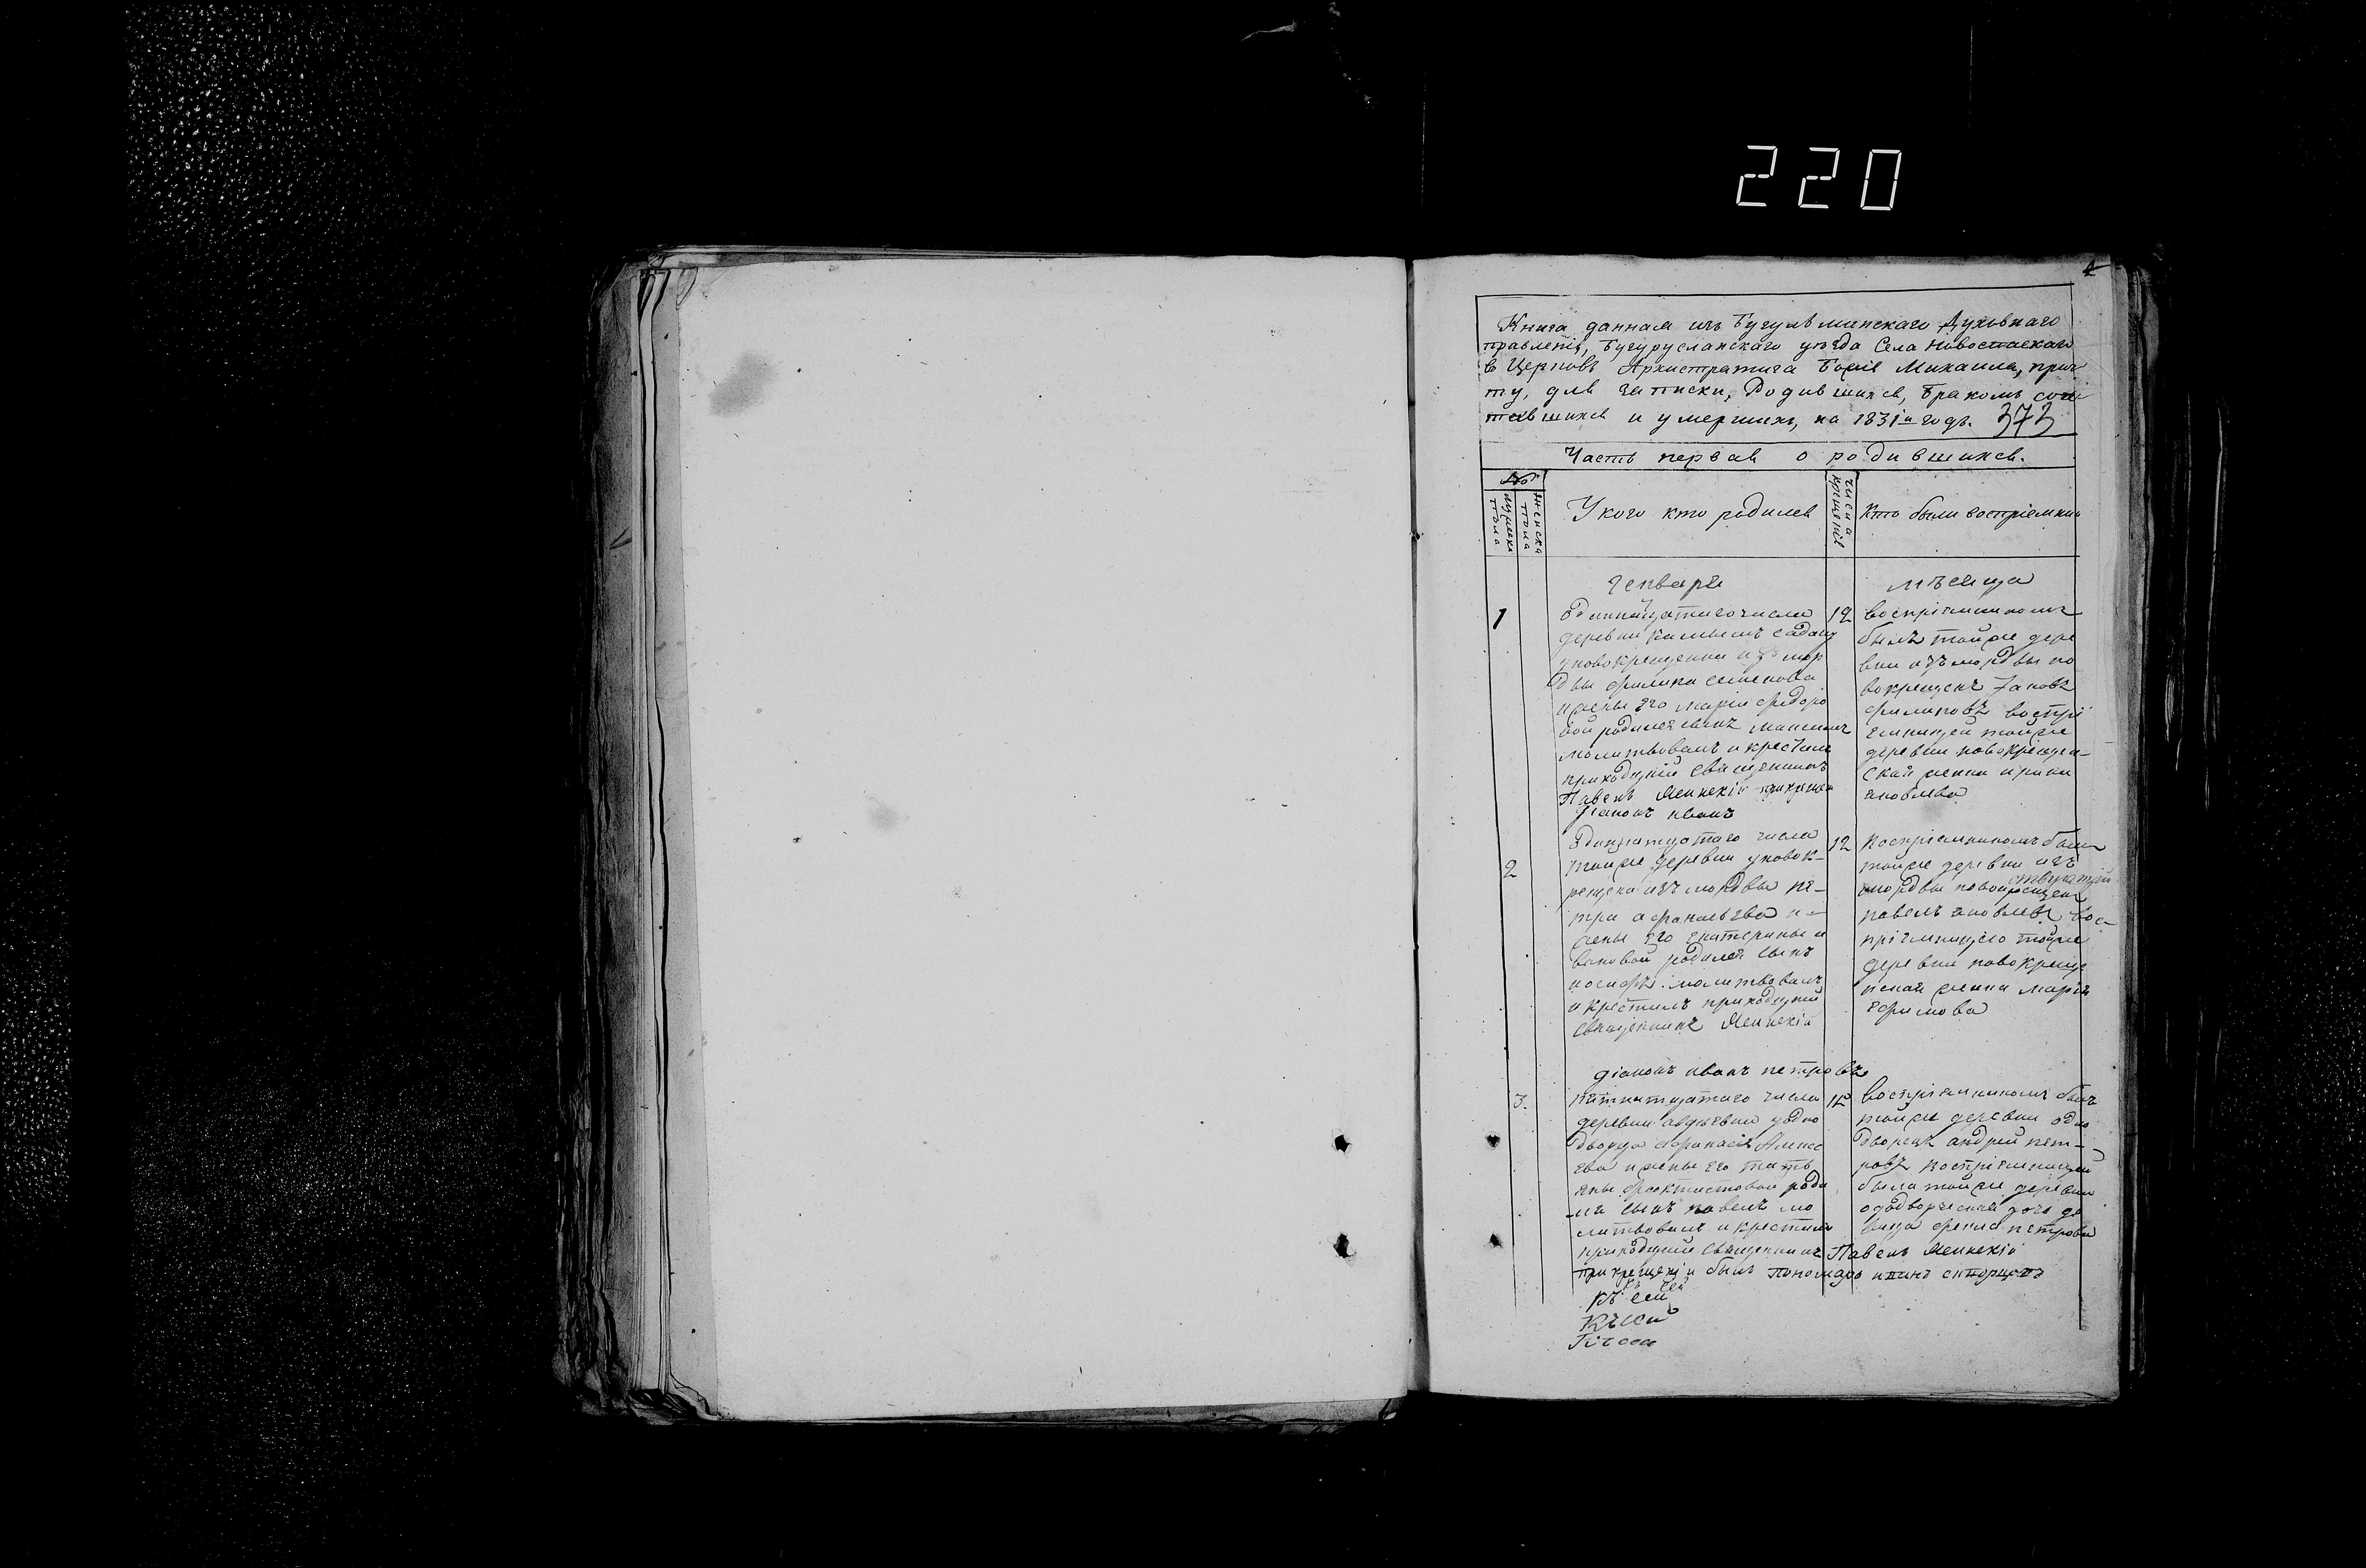 220
Книга данная изъ Бугульминскаго Духовнаго
правленія, Бугурусланскаго уѣзда Села Новоспаскаго
в Церковь Архистратига Божія Михаила, прич
ту, для записки, Родившихся, Бракомъ соче
тавшихся и умершихъ, на 1831й годъ. 373
Часть первая о родившихся.
№
мужеска пола
женска пола
У кого кто родился
числа крещенія
Кто были воспріемники
генваря
мѣсяца
1
одиннадцатого числа
деревни
у новокрещенна изъ мор
двы филипа семенова
и жены его маріи федоро
вой родился сынъ максимъ
молитвовалъ и крестилъ
приходскій священникъ
Павелъ
діаконъ иванъ
12
воспріемникомъ
былъ тойже дере
вни изъ мордвы но
вокрещенъ
филиповъ воспрі
емницей тойже
деревни новокрещен-
ская женка ирина
яковлева
2
одиннатцатого числа
тойже деревни у новок-
рещена изъ мордвы пе-
тра афанасьева и-
жены его екатерины и
вановой родился сынъ
иосифъ. молитвовалъ
и крестилъ приходскій
священникъ
діаконъ иванъ петровъ
12
воспріемникомъ былъ
тойже деревни изъ
мордвы новокрещенъ
павелъ яковлевъ вос-
пріемницею тойже
деревни новокреще
нская женка марія
ефимова
3.
пятнатцатого числа
деревни авдѣевки у одно
дворца афанасія Алекс
ева и жены его тать
яны феоктистовой роди
лся сынъ павелъ мо
литвовалъ и крестилъ
приходскій священникъ Павелъ
при крещеніи былъ пономарь
воспріемникомъ былъ
тойже деревни одно
дворецъ андрей пет-
ровъ воспріемницей
была тойже деревни
однодворческая дочь де
вица фекла петрова
къ сей
къ сей
къ сей